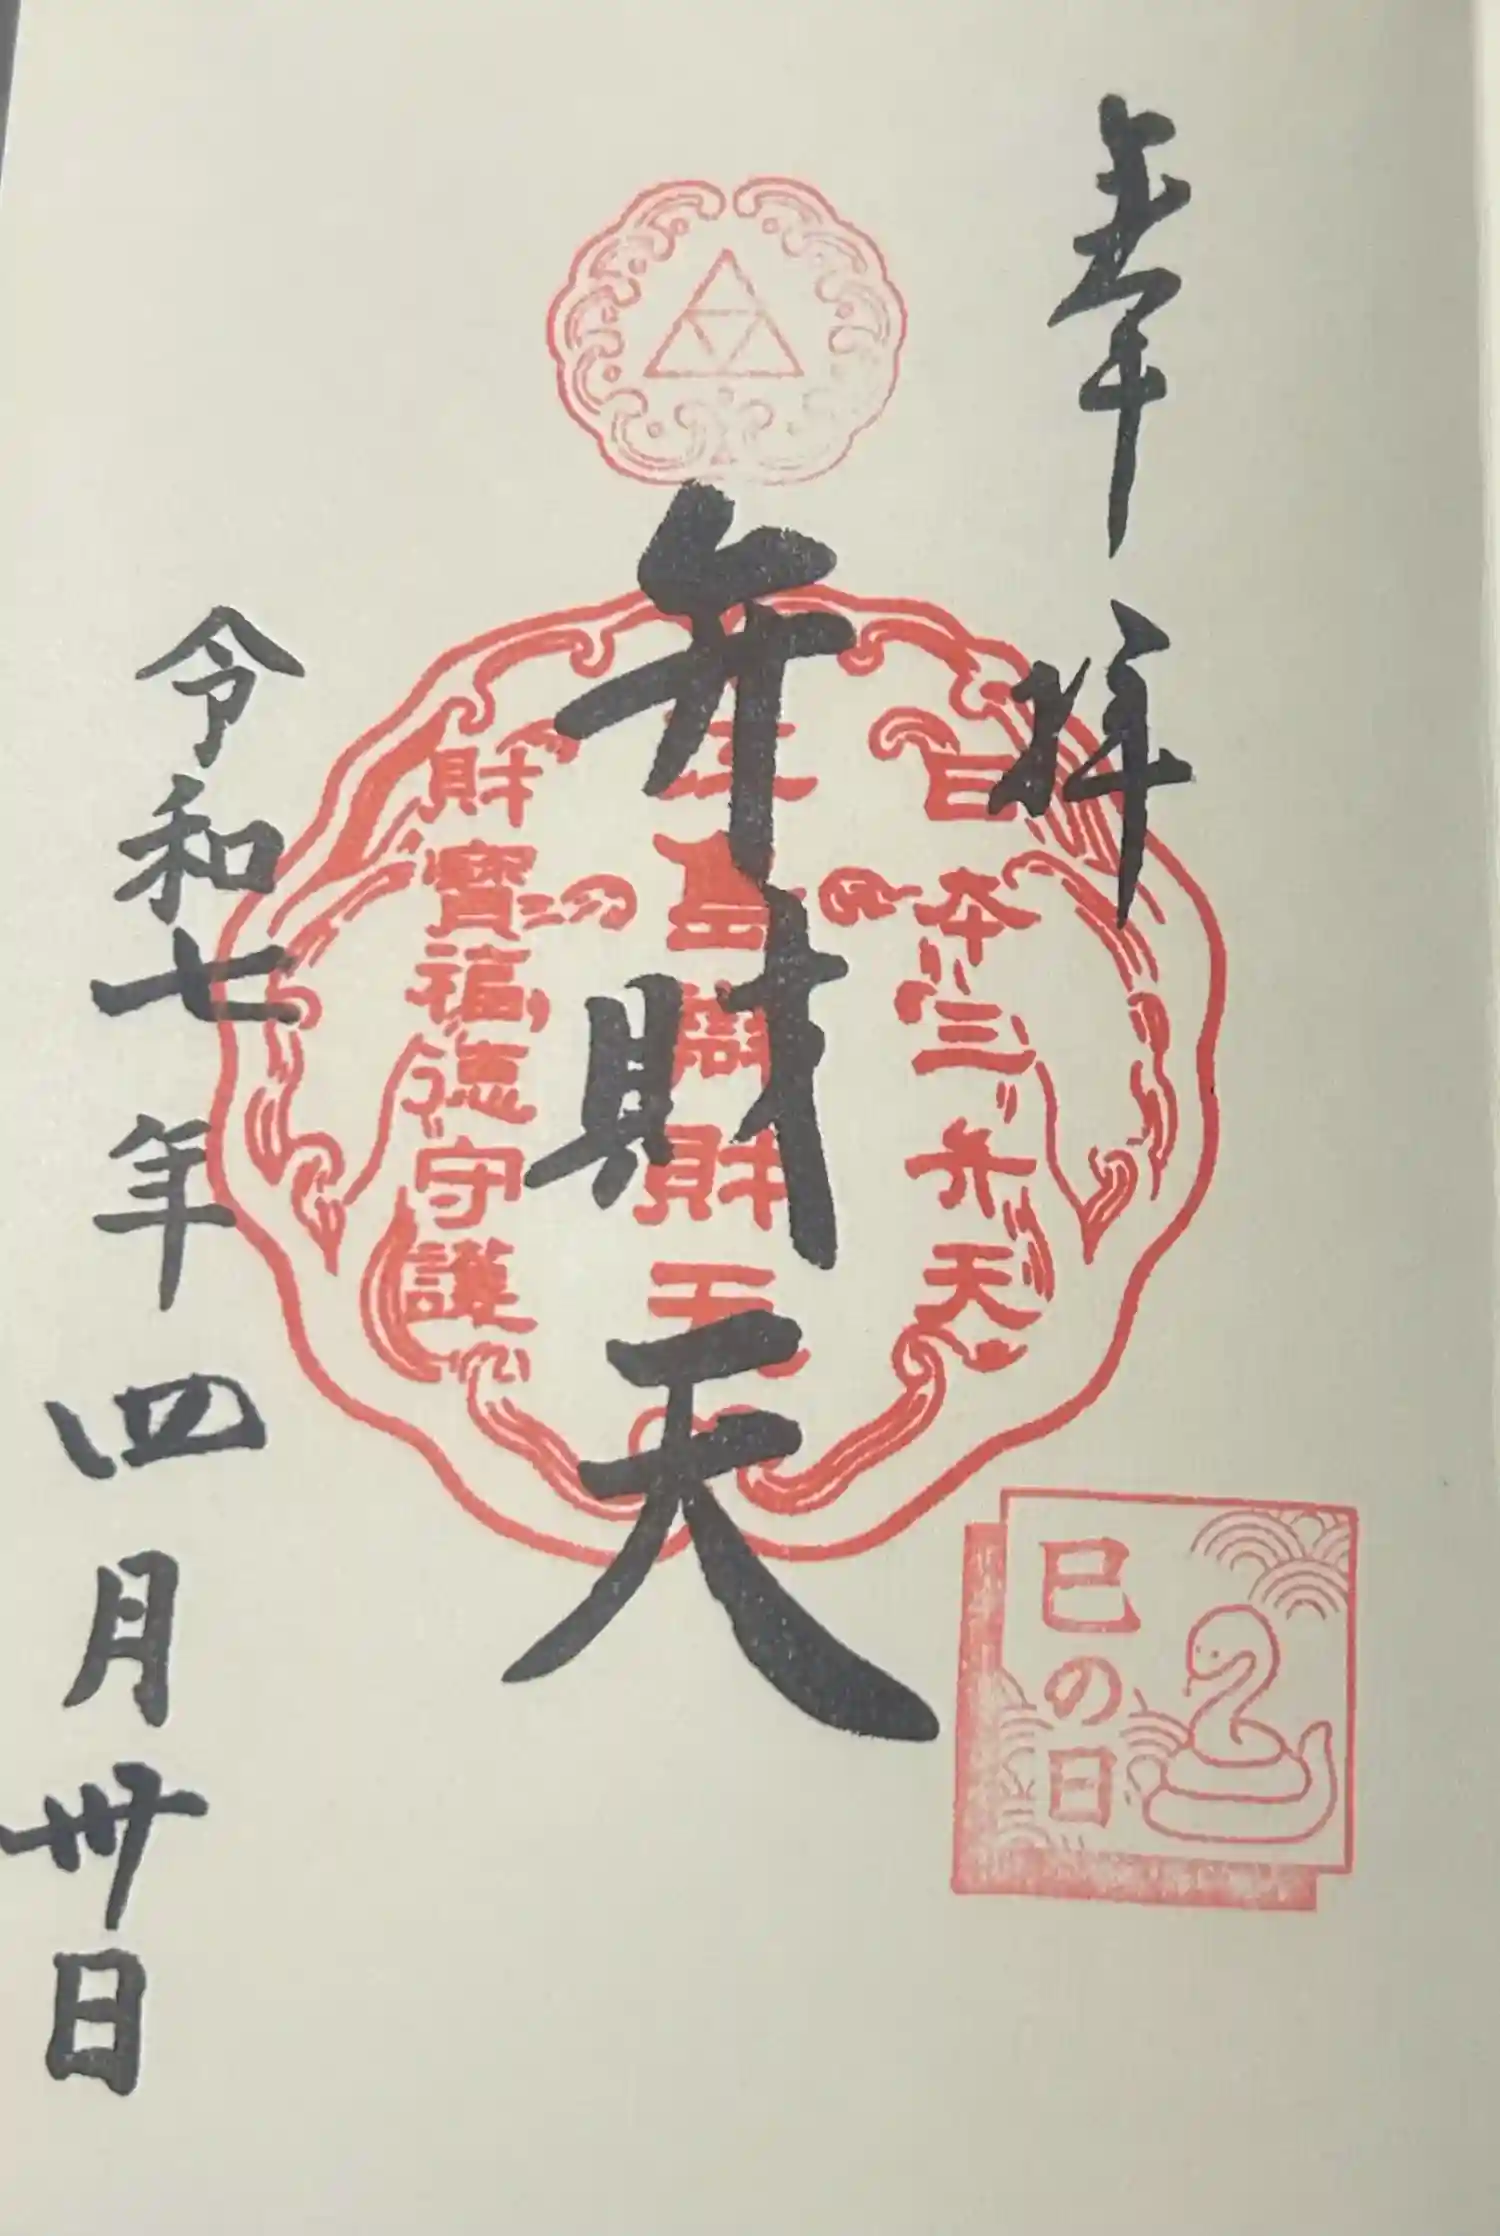 奉拝
日本三弁天
江島辯財天
財寶福徳守護
弁財天
令和七年四月卅日
巳の日